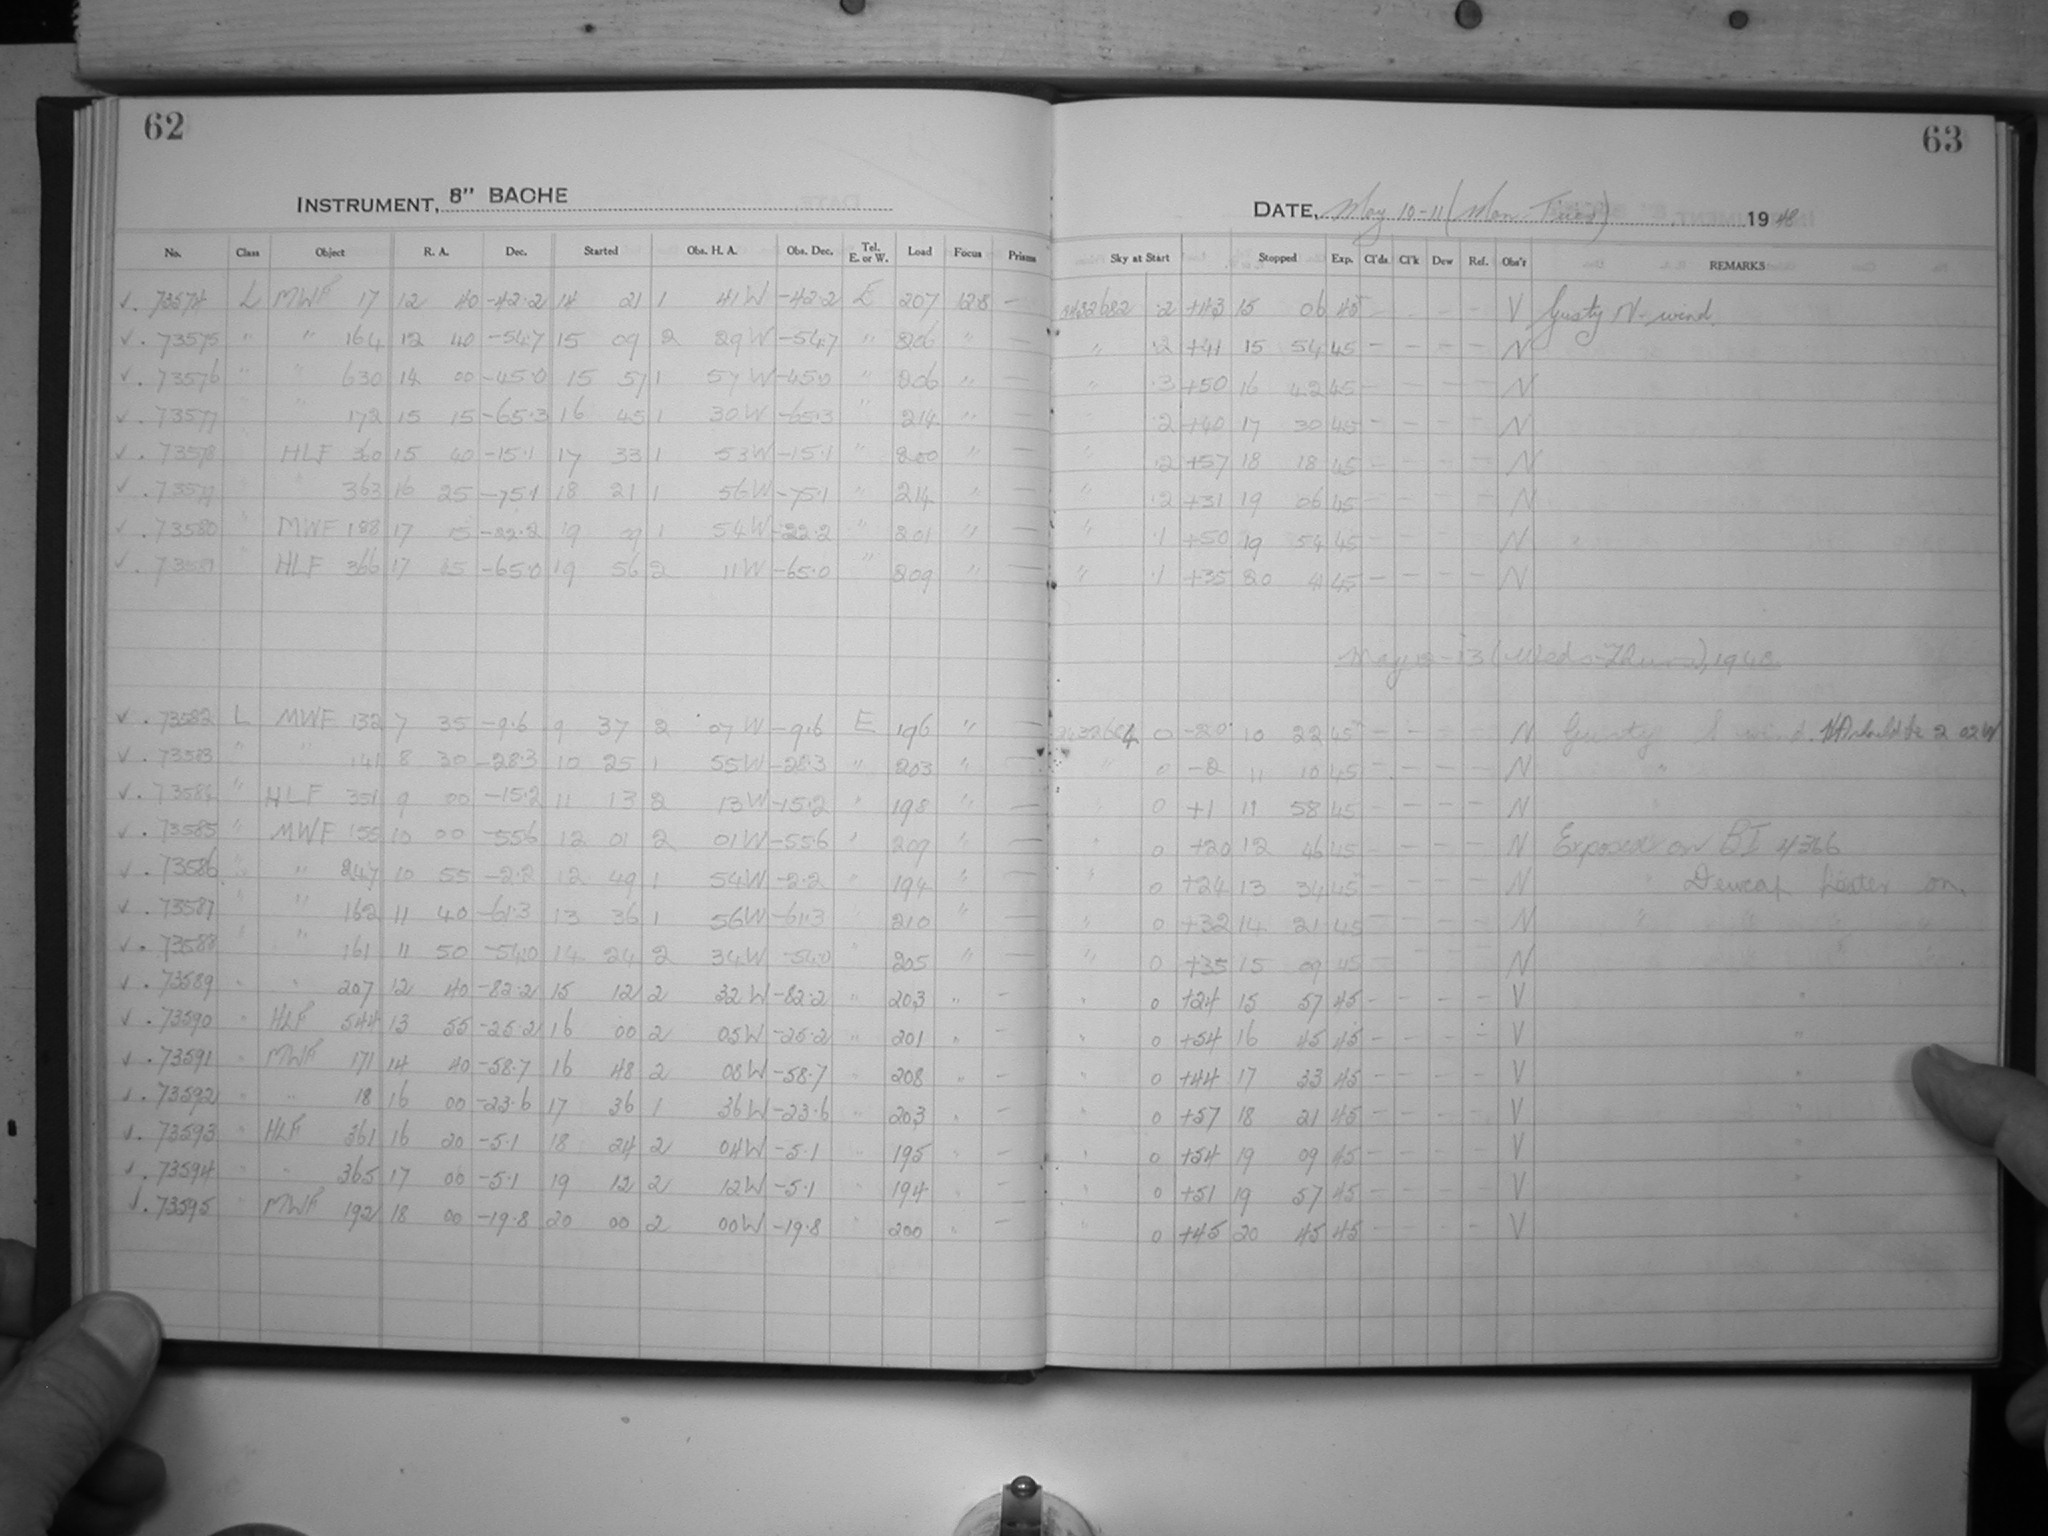 62
63
INSTRUMENT, 8" BACHE
DATE, May 10-11 (Mon-Tues) 1948
No. Class Object R. A. Dec. Started Obs. H. A. Obs. Dec. Tel. E. or W. Load Focus Prisms Sky at Start Stopped Exp. Cl'ds Cl'k Dew Ref. Obs'r REMARKS
√. 73574 L MWF 17 12 40 -42.2 14 21 1 41W -42.2 E 207 12.8 — 2432682 .2 +43 15 06 45 - - - - V Gusty N-wind.
√. 73575 " " 164 12 40 -54.7 15 09 2 29W -54.7 " 206 " — " .2 +41 15 54 45 - - - - N
√. 73576 " " 630 14 00 -45.0 15 57 1 57W -45.0 " 206 " — " .3 +50 16 42 45 - - - - N
√. 73577 " " 172 15 15 -65.3 16 45 1 30W -65.3 " 214 " — " .2 +40 17 30 45 - - - - N
√. 73578 HLF 360 15 40 -15.1 17 33 1 53W -15.1 " 200 " — " .2 +57 18 18 45 - - - - N
√. 73579 " 363 16 25 -75.1 18 21 1 56W -75.1 " 214 " — " .2 +31 19 06 45 - - - - N
√. 73580 " MWF 188 17 15 -22.2 19 09 1 54W -22.2 " 201 " — " .1 +50 19 54 45 - - - - N
√. 73581 " HLF 366 17 45 -65.0 19 56 2 11W -65.0 " 209 " — " .1 +35 20 41 45 - - - - N
May 12-13 (Weds-Thurs), 1948
√. 73582 L MWF 132 7 35 -9.6 9 37 2 07W -9.6 E 196 " — 2432684 0 -20 10 22 45 - - - - N Gusty S wind. HA should be 2 02W
√. 73583 " " 141 8 30 -28.3 10 25 1 55W -28.3 " 203 " — " 0 -2 11 10 45 - - - - N "
√. 73584 " HLF 351 9 00 -15.2 11 13 2 13W -15.2 " 198 " — " 0 +1 11 58 45 - - - - N
√. 73585 " MWF 155 10 00 -55.6 12 01 2 01W -55.6 " 207 " — " 0 +20 12 46 45 - - - - N Exposed on BI 4366
√. 73586 " " 247 10 55 -2.2 12 49 1 54W -2.2 " 194 " — " 0 +24 13 34 45 - - - - N " Dewcap heater on.
√. 73587 " " 162 11 40 -61.3 13 36 1 56W -61.3 " 210 " — " 0 +32 14 21 45 - - - - N " " " "
√. 73588 " " 161 11 50 -54.0 14 24 2 34W -54.0 " 205 " — " 0 +35 15 09 45 - - - - N " "
√. 73589 " " 207 12 40 -82.2 15 12 2 32W -82.2 " 203 " - " 0 +24 15 57 45 - - - - V "
√. 73590 " HLF 544 13 55 -25.2 16 00 2 05W -25.2 " 201 " - " 0 +54 16 45 45 - - - - V "
√. 73591 " MWF 171 14 40 -58.7 16 48 2 08W -58.7 " 208 " - " 0 +44 17 33 45 - - - - V "
√. 73592 " " 18 16 00 -23.6 17 36 1 36W -23.6 " 203 " - " 0 +57 18 21 45 - - - - V "
√. 73593 " HLF 361 16 20 -5.1 18 24 2 04W -5.1 " 195 " - " 0 +54 19 09 45 - - - - V "
√. 73594 " " 365 17 00 -5.1 19 12 2 12W -5.1 " 194 " - " 0 +51 19 57 45 - - - - V "
√. 73595 " MWF 192 18 00 -19.8 20 00 2 00W -19.8 " 200 " - " 0 +45 20 45 45 - - - - V "